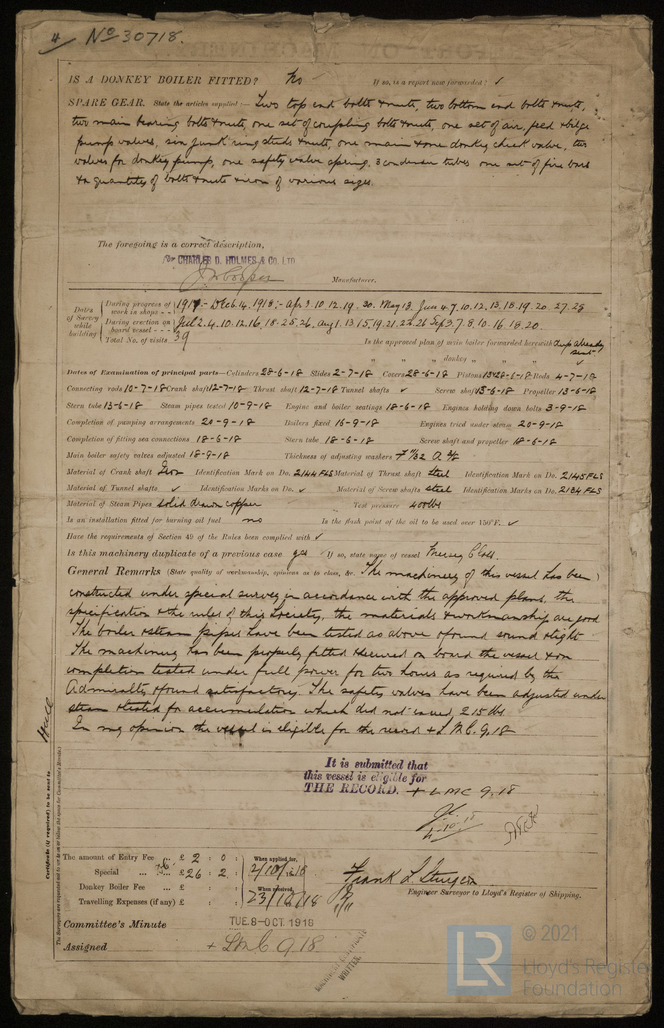 4 No 30718.
IS A DONKEY BOILER FITTED? No If so, is a report now forwarded? ✓
SPARE GEAR. State the articles supplied :— Two top end bolts & nuts, two bottom end bolts & nuts,
two main bearing bolts & nuts, one set of coupling bolts & nuts, one set of air, feed & bilge
pump valves, six junk ring studs & nuts, one main & one donkey check valve, two
valves for donkey pump, one safety valve spring, 3 condenser tubes, one set of fire bars
& a quantity of bolts & nuts & iron of various sizes.
The foregoing is a correct description,
For CHARLES D. HOLMES & Co. LTD
Manufacturer.
Dates of Survey while building
During progress of work in shops - - 1917 :- Dec 6. 4. 1918 :- Apr 3. 10. 12. 19. 30. May 13. June 4. 7. 10. 12. 13. 18. 19. 20. 27. 28
During erection on board vessel - - - July 2. 4. 10. 12. 16. 18. 25. 26. Aug 1. 13. 15. 19. 21. 24. 26 Sep 3. 7. 8. 10. 16. 18. 20
Total No. of visits 39 Is the approved plan of main boiler forwarded herewith Dup already sent
" " " donkey " " " ✓
Dates of Examination of principal parts—Cylinders 28-6-18 Slides 2-7-18 Covers 28-6-18 Pistons 28-6-18 Rods 4-7-18
Connecting rods 10-7-18 Crank shaft 12-7-18 Thrust shaft 12-7-18 Tunnel shafts ✓ Screw shaft 13-6-18 Propeller 13-6-18
Stern tube 13-6-18 Steam pipes tested 10-9-18 Engine and boiler seatings 18-6-18 Engines holding down bolts 3-9-18
Completion of pumping arrangements 20-9-18 Boilers fixed 16-9-18 Engines tried under steam 20-9-18
Completion of fitting sea connections 18-6-18 Stern tube 18-6-18 Screw shaft and propeller 18-6-18
Main boiler safety valves adjusted 18-9-18 Thickness of adjusting washers
Material of Crank shaft Iron Identification Mark on Do. 2144 FLS Material of Thrust shaft Steel Identification Mark on Do. 2145 FLS
Material of Tunnel shafts ✓ Identification Marks on Do. ✓ Material of Screw shafts steel Identification Marks on Do. 2134 FLS
Material of Steam Pipes solid drawn copper Test pressure 400 lbs
Is an installation fitted for burning oil fuel no Is the flash point of the oil to be used over 150°F. ✓
Have the requirements of Section 49 of the Rules been complied with ✓
Is this machinery duplicate of a previous case yes If so, state name of vessel Mersey Class.
General Remarks (State quality of workmanship, opinions as to class, &c. The machinery of this vessel has been
constructed under special survey in accordance with the approved plans, the
specification & the rules of this Society, the materials & workmanship are good
The boiler & steam pipes have been tested as above & found sound & tight
The machinery has been properly fitted & secured on board the vessel & on
completion tested under full power for two hours as required by the
Admiralty & found satisfactory. The safety valves have been adjusted under
steam & tested for accumulation which did not exceed 215 lbs
In my opinion the vessel is eligible for the record + L.M.C. 9.18
It is submitted that
this vessel is eligible for
THE RECORD. + LMC 9.18
4.10.18
Hull
Certificate (if required) to be sent to
The Surveyors are requested not to write on or below the space for Committee's Minute.
The amount of Entry Fee ... £ 2 : 0 : When applied for,
Special ... £ 26 : 2 : 2/10/1918
Donkey Boiler Fee ... £ : : When received,
Travelling Expenses (if any) £ : : 23/10/18
Frank L Sturgeon
Engineer Surveyor to Lloyd's Register of Shipping.
Committee's Minute TUE. 8-OCT. 1918
Assigned + LMC 9.18
WRITTEN.
LR
© 2021
Lloyd's Register
Foundation